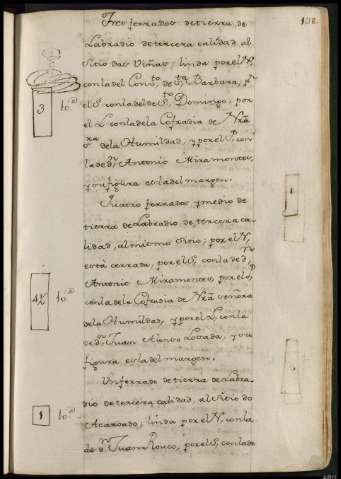 108.
Tres ferrados de tierra de
Labradio de tercera calidad al
Sitio das Viñas; linda por el N.
con la del Conv.to de S.ta Barbara, p.r
el S. con la del de S.to Domingo, por
el L. con la de la Cofradia de Nra
Sra de la Humildad, y por el P. con
la de d.n Antonio Miramontes,
y su figura es la del margen.
3 to.
Quatro ferrados y medio de
tierra de Labradio de tercera ca-
lidad, al mismo Sitio; por el N.
està cerrada, por el S. con la de d.n
Antonio Miramontes, por el P.
con la de la Cofradia de Nra Señora
de la Humildad, y por el L. con la
de d.n Juan Alonso Losada, y su
figura es la del margen.
4½ to.
Un ferrado de tierra de Labra-
dio de tercera calidad, al Sitio do
Acaroado; linda por el N. con la
de d.n Juan Rouco, por el S. con la de
1 to.